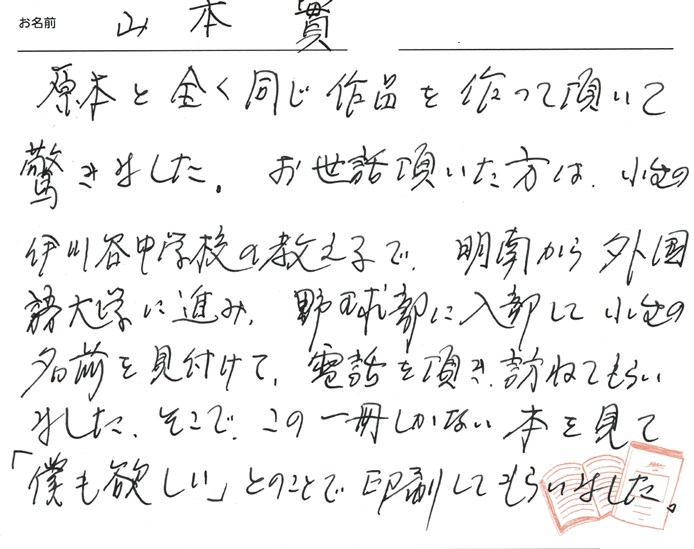 お名前 山本 實
原本と全く同じ作品を作って頂いて
驚きました。お世話頂いた方は、小生の
伊川谷中学校の教え子で、明南から外国
語大学に進み、野球部に入部して小生の
名前を見付けて、電話を頂き、訪ねてもらい
ました、そこで、この一冊しかない本を見て
「僕も欲しい」とのことで印刷してもらいました。